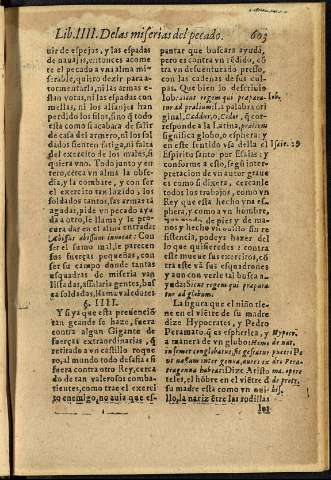 Lib. IIII. De las miserias del pecado. 603
uir de espejas, y las espadas
de nauajas, entonces acome
te el pecado a vna alma mise
rable, quiero dezir para ator-
mentarla, ni las armas es es-
tiuo votas, ni las espadas con
muellas, ni los alfanjes han
perdido los filos, sino q̃ todo
esta como si acabara de salir
de casa del armero, ni los sol
dados sienten fatiga, ni falta
del exercito de los males, si
quiera vno. Todo junto y en
tero, cerca vn alma la obse-
dia, y la combate, y con ser
el exercito tan luzido, los
soldados tantos, las armas tã
agudas, pide vn pecado ayu
da a otro, le llama y le procu
ra dar en el alma entrada:
Abissus abissum inuocat: Con
ser su ramo mal, le parecen
sus fuerças pequeñas, con
ser su campo donde tantas
esquadras de miseria van
listadas, assalaria gentes, bus
ca soldados, llama valedores
§. IIII.
Y si ya que esta preuenciõ
tan grande se haze, fuera
contra algun Gigante de
fuerças extraordinarias, q̃
retirado a vn castillo roque
ro, al mundo todo desafia si
fuera contra otro Rey, cerca
do de tan valerosos comba-
tientes, como trae el exerci
to enemigo, no auia que es-
pantar que buscara ayuda,
pero es contra vn rẽdido, cõ
tra vn desuenturado presso,
con las cadenas de sus cul-
pas. Que bien lo descriuio
Iob: sicut regem qui præpara-
tur ad prælium: La palabra ori
ginal, Caddor, o Cidor, q̃ cor-
responde a la Latina, prælium
significa globo, o esphera; y
en este sentido vsa della el
Espiritu santo por Esaias: y
conforme a esto, segũ inter-
pretacion de vn autor graue
es como si dixera, cercanle
todos los trabajos, como vn
Rey que esta hecho vna es-
phera, y como a vn hombre,
de pies y de ma-
nos y hecho vn ouillo sin re-
sistencia, podeys hazer del
lo que quisierdes: contra
este mueue sus exercitos, cõ
tra este vã sus esquadrones
y aun con verle tal busca a-
yudas sicut regem qui prepara
tur ad globum.
La figura que el niño tiene
en el vientre de su madre
dize Hypocrates, y Pedro
Peramato, q̃ es espherica, y
a manera de vn globo: Homi
infernet conglobatus, sic gestatus
vt nasum inter genua, aures ex
genua habeat: Dize Aristo
teles, el hõbre en el viẽtre d̃
su madre esta como vn oui-
llo, la nariz ẽtre las rodillas
los
Iob.
Isaie. 29
Hypocr.
de nat.
pueri Pe
dr. Pera
ma. opere
de pretz.